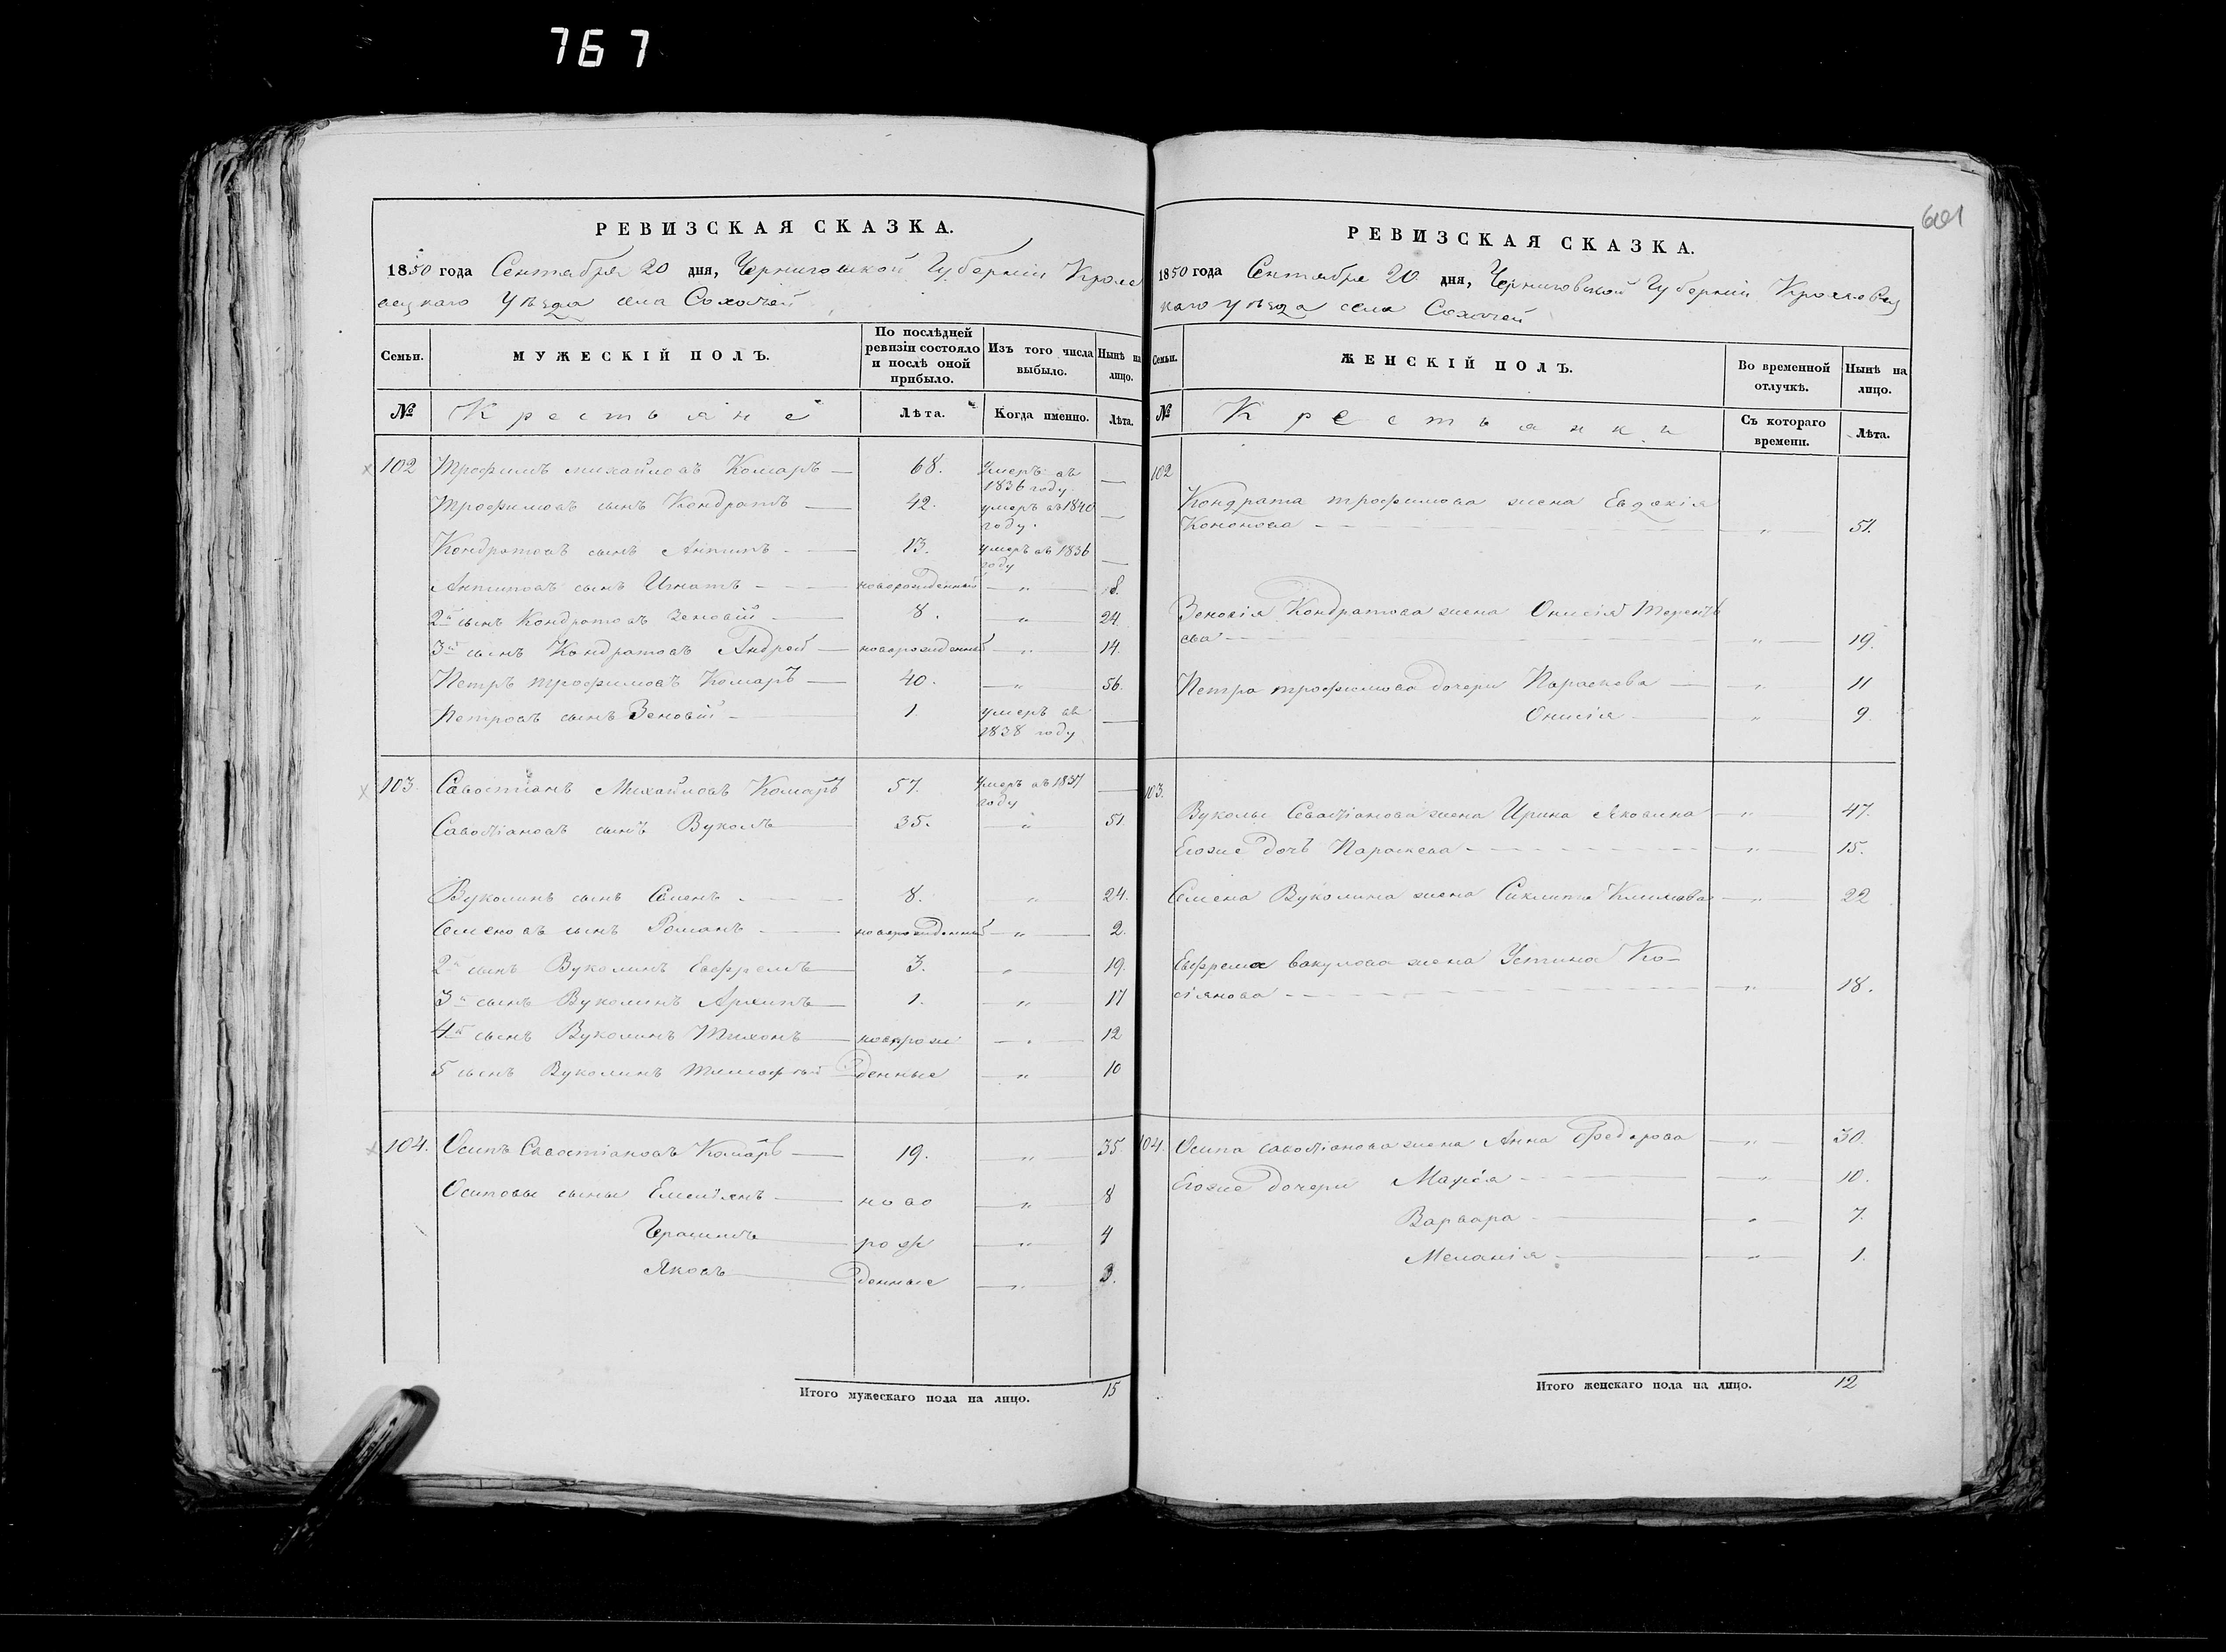 767
601
РЕВИЗСКАЯ СКАЗКА.
1850 года Сентября 20 дня, Черниговской Губерніи Кроле
вецкаго Уѣзда села Сохачей
Семьи.
МУЖЕСКІЙ ПОЛЪ.
По послѣдней
ревизіи состояло
и послѣ оной
прибыло.
Изъ того числа
выбыло.
Нынѣ на
лицо.
№ Крестьяне Лѣта. Когда именно. Лѣта.
102 Трофимъ Михайловъ Комаръ — 68. Умеръ въ —
1836 году.
Трофимовъ сынъ Кондратъ — 42. умеръ въ 1840 —
году.
Кондратовъ сынъ Антипъ — 13. умеръ въ 1836 —
году
Антиповъ сынъ Игнатъ — новорожденный — „ — 18.
2й сынъ Кондратовъ Зеновій — 8. „ 24.
3й сынъ Кондратовъ Андрей — новорожденный — „ — 14.
Петръ Трофимовъ Комаръ — 40. — „ — 56.
Петровъ сынъ Зеновій — 1. умеръ въ —
1838 году
103. Савостіянъ Михайловъ Комаръ 57. Умеръ въ 1837 —
году
Савостіановъ сынъ Вуколъ — 35. „ 51
Вуколинъ сынъ Семенъ — 8. „ 24.
Семеновъ сынъ Романъ — новорожденный — „ — 2.
2й сынъ Вуколинъ Евфремъ — 3. — „ — 19.
3й сынъ Вуколинъ Архипъ — 1. — „ — 17
4й сынъ Вуколинъ Тихонъ — новорож — „ — 12
5 сынъ Вуколинъ Тимофей денные — „ — 10
104. Осипъ Савостіановъ Комаръ — 19. — „ — 35.
Осиповы сыны Емельянъ — ново — „ — 8
Герасимъ — рож — „ — 4
Яковъ — денные — „ — 3.
Итого мужескаго пола на лицо. 15
РЕВИЗСКАЯ СКАЗКА.
1850 года Сентября 20 дня, Черниговской Губерніи Кролевец
каго уѣзда села Сохачей
Семьи.
ЖЕНСКІЙ ПОЛЪ.
Во временной
отлучкѣ.
Нынѣ на
лицо.
№ Крестьянки
Съ котораго
времени.
Лѣта.
102
Кондрата Трофимова жена Евдокія
Кононова — „ — 51.
Зеновія Кондратова жена Онисія Терентъ
ева — „ — 19.
Петра Трофимова дочери Параскева — „ — 11
Онисія — „ — 9.
103.
Вуколы Севастіанова жена Ирина Яковлина — „ — 47.
Егоже дочь Параскева — „ — 15.
Семена Вуколина жена Сиклита Климова — „ — 22
Евфрема вакулова жена Устина Ко-
сіянова — „ — 18.
104. Осипа Савостіанова жена Анна Федорова — „ — 30.
Егоже дочери Марія — „ — 10.
Варвара — „ — 7.
Меланія — „ — 1.
Итого женскаго пола на лицо. 12